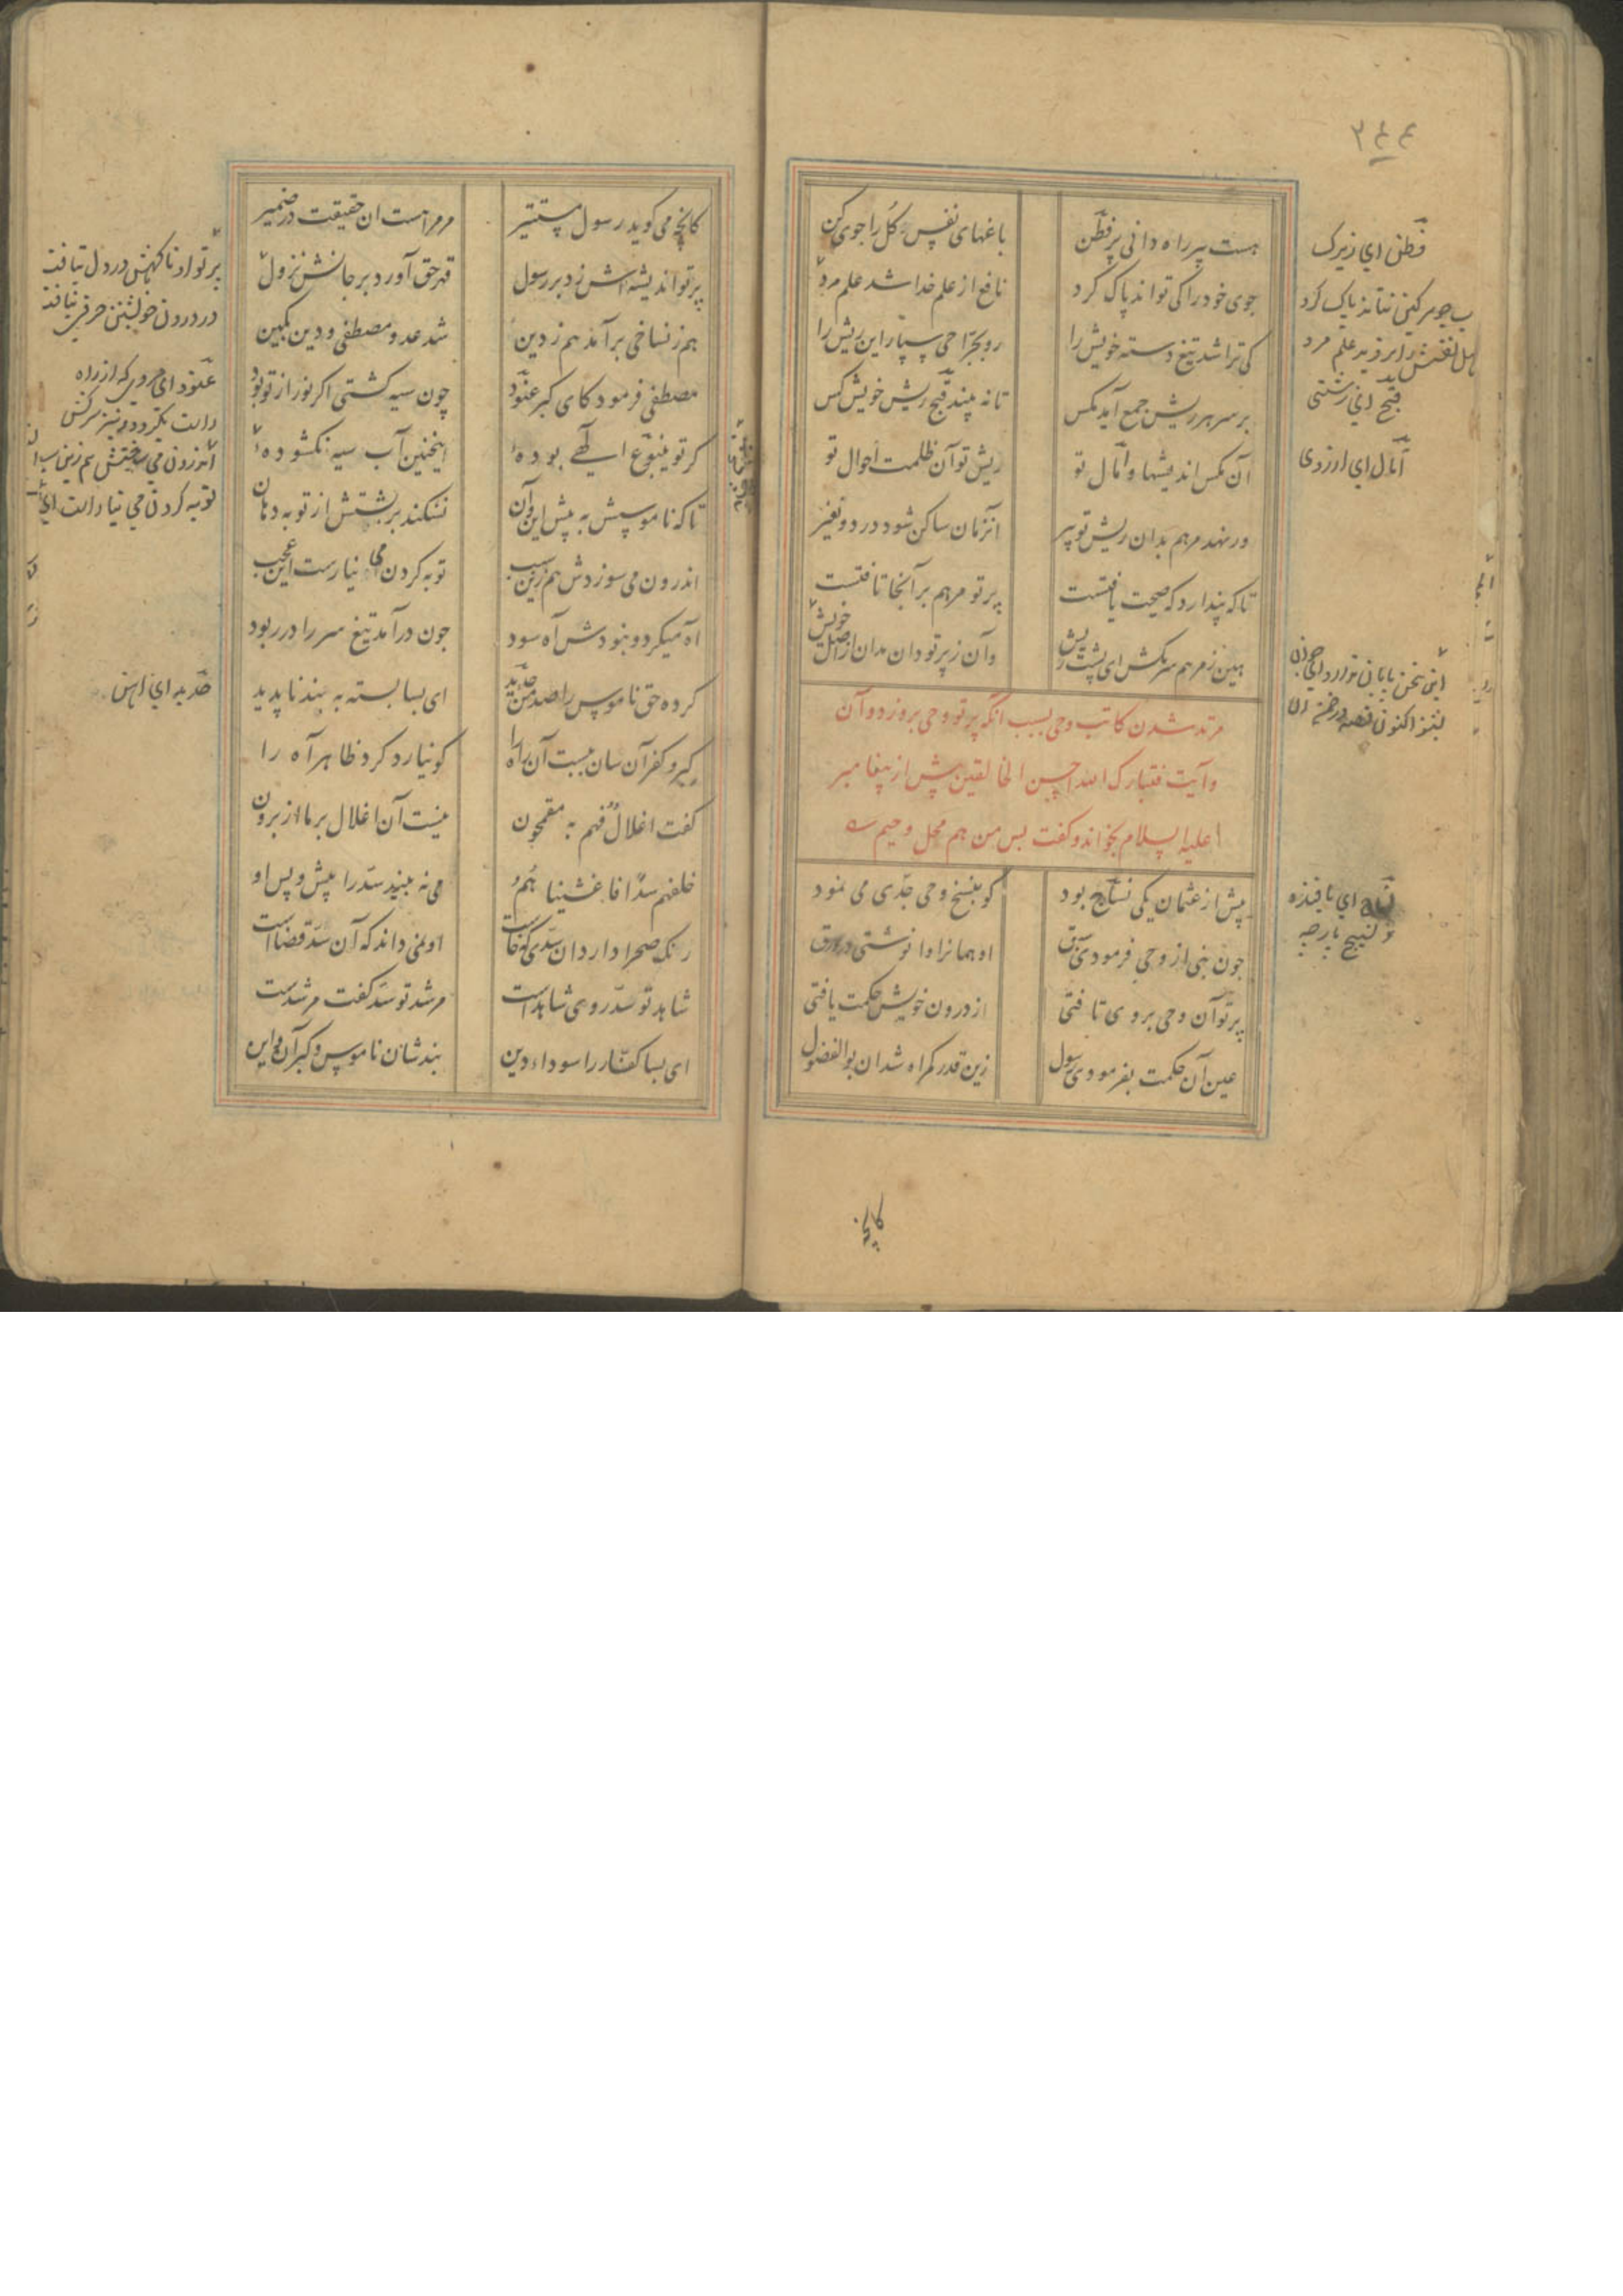 ۳۴۴
هست پیر راه دانی پر فطن باغهای نفس کل را جوی کن
جوی خود را کی تواند پاک کرد نافع از علم خدا شد علم مرد
کی تراشد تیغ دسته خویش را رو بجراحی سپار این ریش را
بر سر هر ریش جمع آمد مکس تا نه بیند قبح ریش خویش کس
آن مکس اندیشها و آمال تو ریش تو آن ظلمت احوال تو
ور نهد مرهم بدان ریش تو پیر آنزمان ساکن شود درد و نفیر
تا که پندارد که صحت یافتست پرتو مرهم بر آنجا تافتست
هین ز مرهم سر مکش ای پشت ریش وآن ز پرتو دان مدان از اصل خویش
مرتد شدن کاتب وحی بسبب انکه پرتو وحی بروزد و آن
وآیت فتبارک الله احسن الخالقین پیش از پیغامبر
علیه السلام بخواند و کفت بس من هم محل وحیم
پیش از عثمان یکی نساخ بود کو بنسخ وحی جدی می نمود
چون نبی از وحی فرمودی سبق او همانرا وا نوشتی در ورق
پرتو آن وحی بر وی تافتی از درون خویش حکمت یافتی
عین آن حکمت بفرمودی رسول زین قدر کمراه شد ان بوالفضول
فطن ای زیرک
قبح ای زشتی
آمال ای ارزوی
کانچه
کانچه می کوید رسول مستنیر مر مرا هست ان حقیقت در ضمیر
پرتو اندیشه اش زد بر رسول قهر حق آورد بر جانش نزول
هم ز نساخی برآمد هم ز دین شد عدو مصطفی و دین بکین
مصطفی فرمود کای کبر عنود چون سیه کشتی اکر نور از تو بود
کر تو ینبوع الهی بودهٔ اینچنین آب سیه نکشودهٔ
تا که ناموسش به پیش این و آن نشکند بربستش از توبه دهان
اندرون می سوزدش هم زین سبب توبه کردن می نیارست این عجب
آه میکرد و نبودش آه سود چون درآمد تیغ سر را در ربود
کرده حق ناموس را صد من حدید ای بسا بسته به بند ناپدید
کبر و کفر آن سان ببست آن راه را کو نیارد کرد ظاهر آه را
کفت اغلالا فهم به مقمحون نیست آن اغلال بر ما از برون
خلفهم سدا فاغشیناهم می نه بیند سد را پیش و پس او
رنک صحرا دارد ان سدی که خاست او نمی داند که آن سد قضاست
شاهد تو سد روی شاهد است مرشد تو سد کفت مرشد ست
ای بسا کفار را سوداء دین بندشان ناموس و کبر آن و این
حدید ای اهن